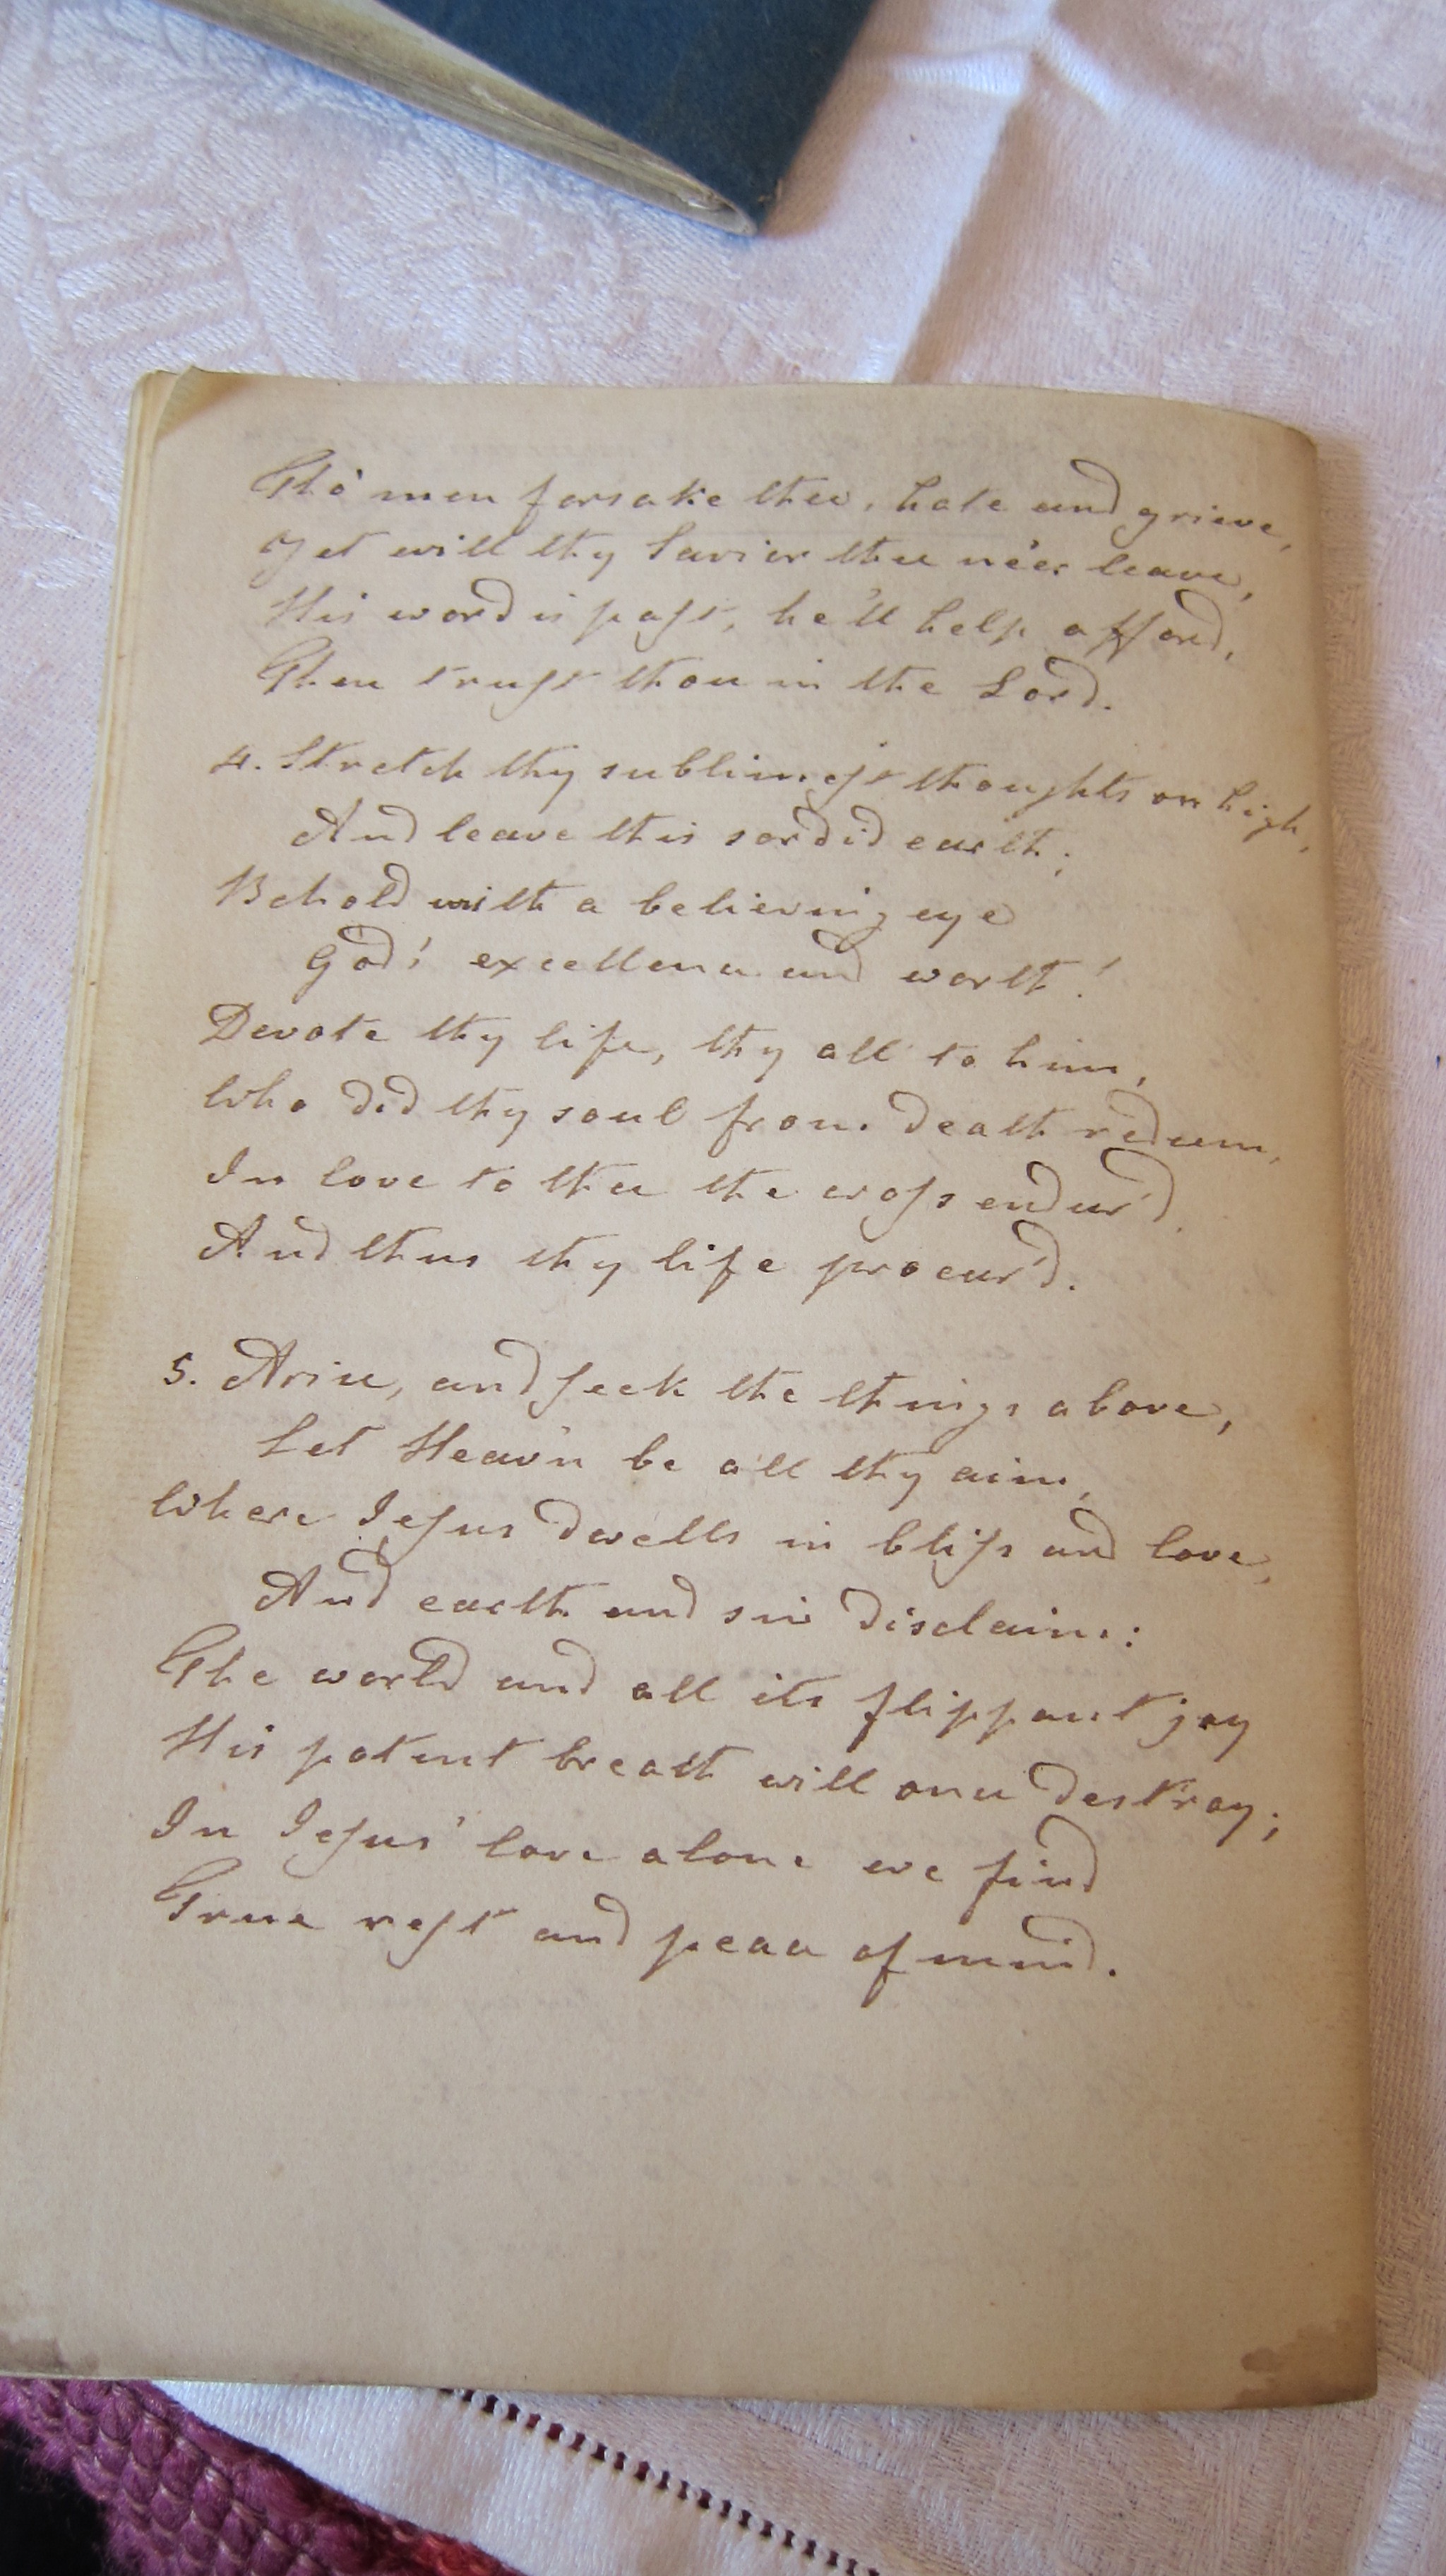 Tho' men forsake thee, hate and grieve,
Yet will thy Savior thee ne'er leave,
His word is past, he'll help afford,
Then trust thou in the Lord.
4. Stretch thy sublimest thoughts on high,
And leave this sordid earth;
Behold with a believing eye
God's excellence and worth!
Devote thy life, thy all to him,
Who did thy soul from death redeem,
In love to thee the cross endur'd
And thus thy life procur'd.
5. Arise, and seek the things above,
Let Heav'n be all thy aim,
Where Jesus dwells in bliss and love,
And earth and sin disclaim:
The world and all its flippant joy
His potent breath will once destroy;
In Jesus' love alone we find
True rest and peace of mind.